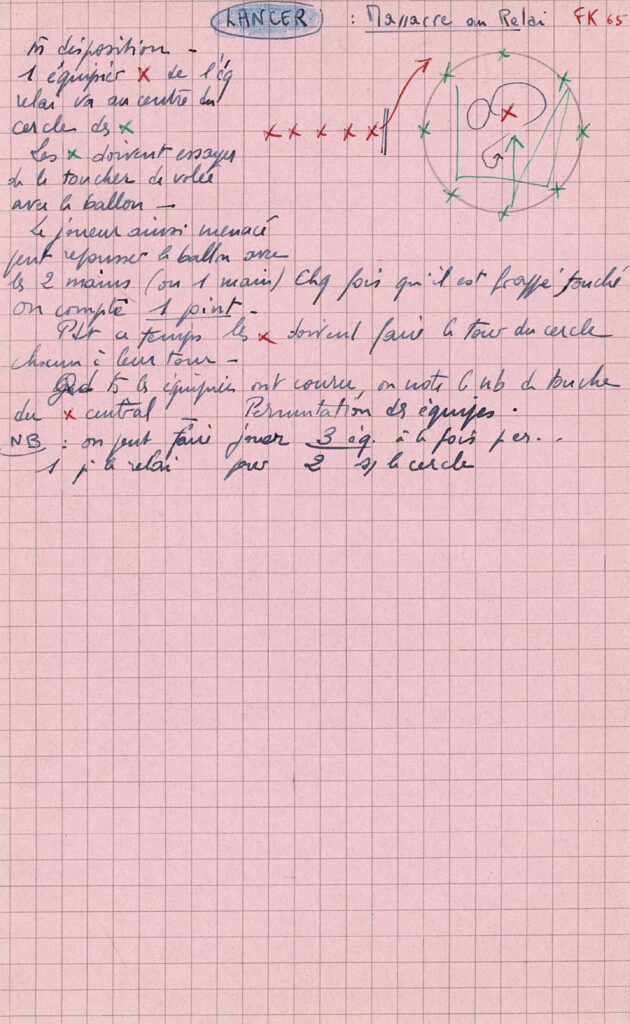 LANCER : Massacre au Relai FK 65
m̂ disposition -
1 équipier x de l'éq
relai va au centre du
cercle des x
Les x doivent essayer
de le toucher de volée
avec le ballon -
Le joueur ainsi menacé
peut repousser le ballon avec
les 2 mains (ou 1 main) Chq fois qu'il est frappé touché
on compte 1 point -
Pdt ce temps les x doivent faire le tour du cercle
chacun à leur tour -
Qnd ts les équipiers ont couru, on note le nb de touche
du x central Permutation des équipes.
NB : on peut faire jouer 3 éq. à la fois
1 pr le relai pour 2 sr le cercle